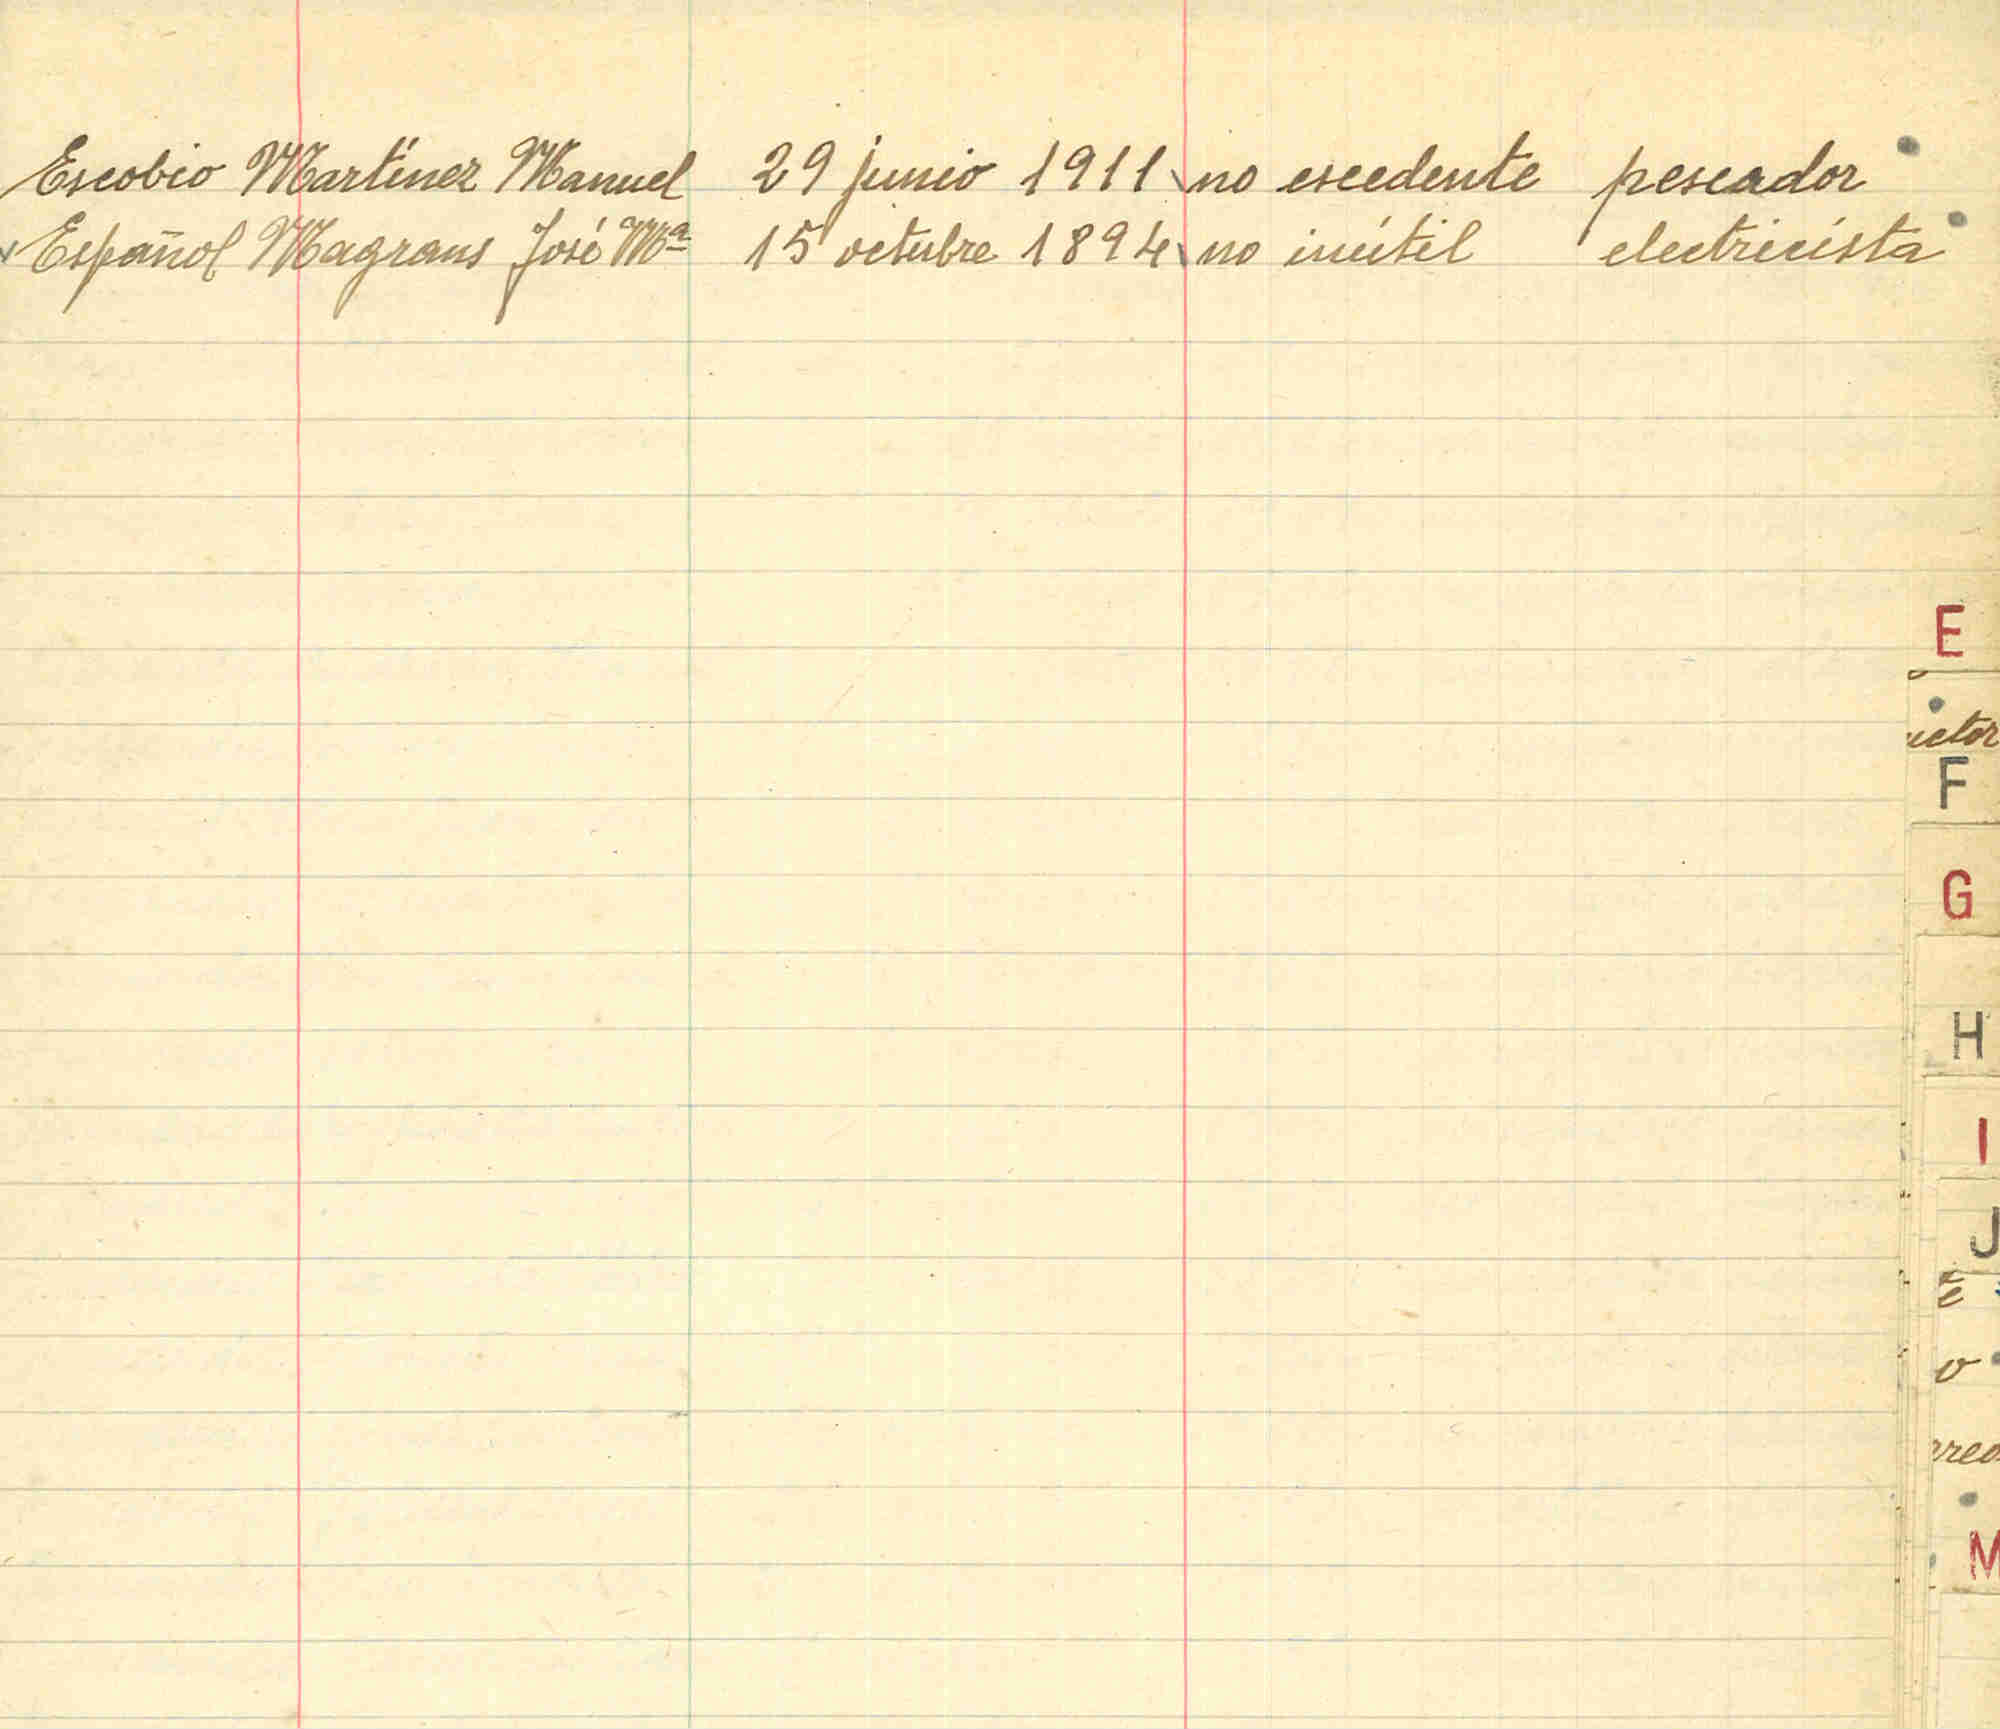 Escobio Martínez Manuel 29 junio 1911 no escedente pescador
Español Magrans José Mª 15 octubre 1894 no inútil electricista
E
F
G
H
I
J
M